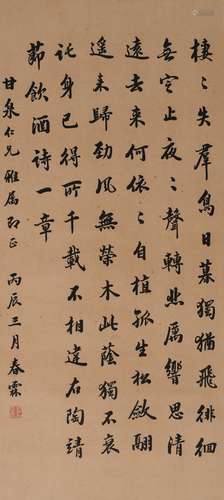 棲〻失羣鳥日暮猶飛徘徊
無定止夜〻聲轉悲厲響思清
遠去來何依〻自植孤生松斂翮
遙来歸勁風無榮木此蔭獨不衰
託身已得所千載不相違右陶靖
節飲酒詩一章
甘泉仁兄雅屬即正 丙辰三月春霖